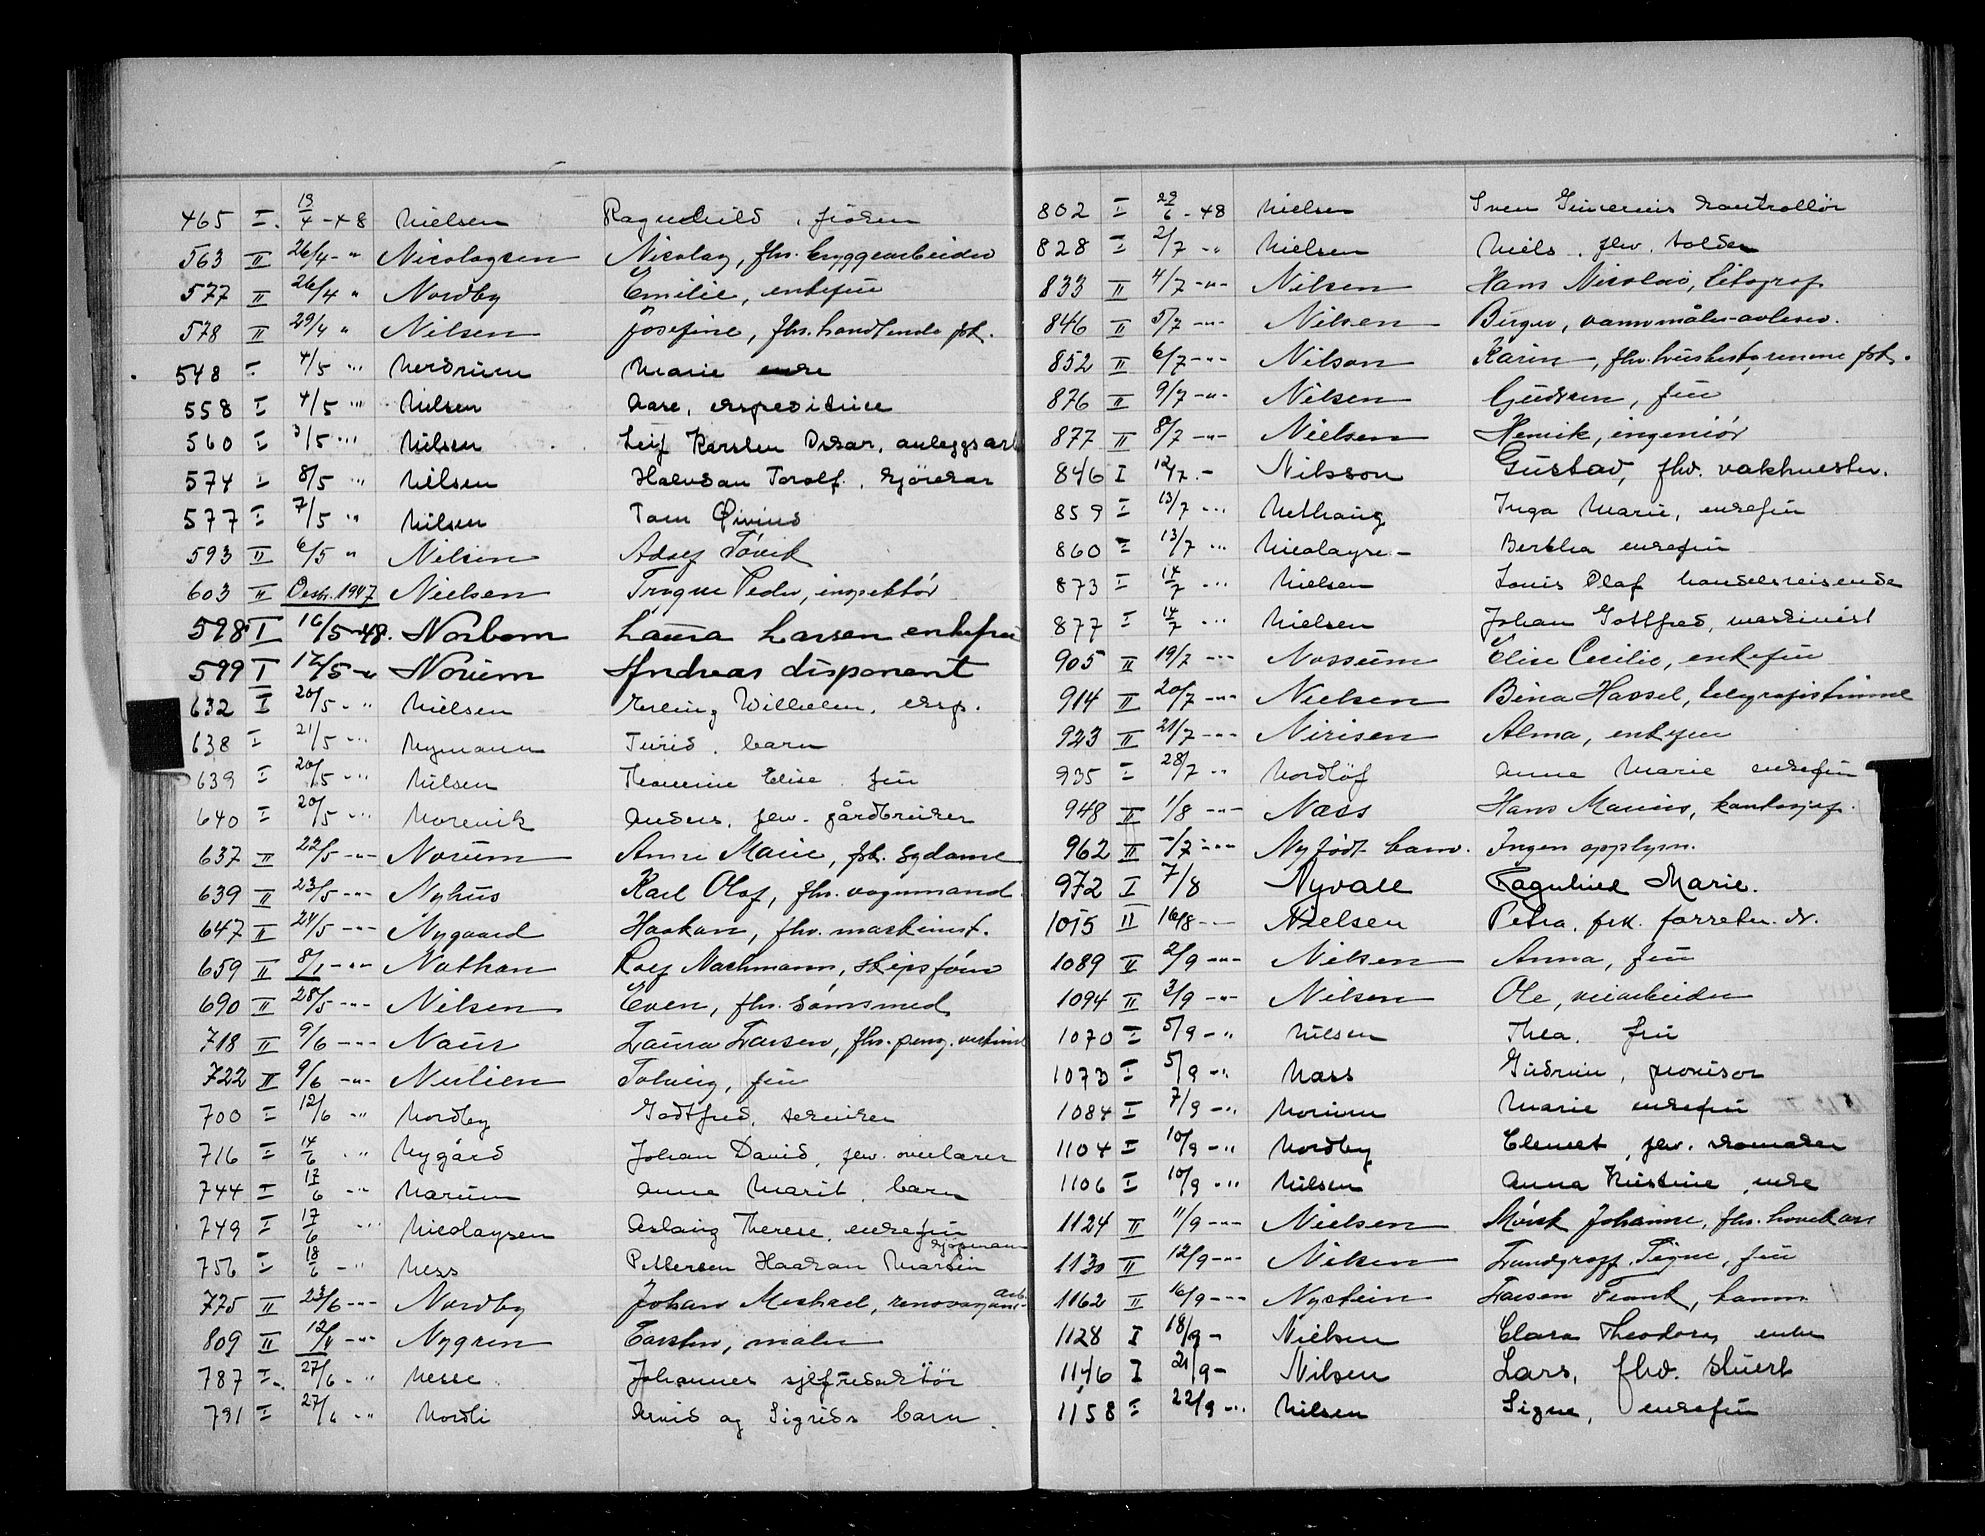 465 I. 19/4 - 48 Nielsen Ragnhild, frøken
563 II 26/4 - " Nicolaysen Nicolay, fhv. bryggearbeider
577 II 26/4 " Nordby Emilie, enkefru
578 II 29/4 " Nilsen Josefine, fhv. handlende frk.
548 I 4/5 " Nordrum Marie enke
558 I 4/5 " Nilsen Aase, ekspeditrise
560 I 3/5 " Nilsen Leif Karsten Oskar, anleggsarb
574 I 8/5 " Nilsen Halvdan Torolf, kjørekar
577 I 7/5 " Nilsen Tom Øivind
593 II 6/5 " Nilsen Adolf
603 II Desbr. 1947 Nielsen Trygve Peder, inspektør
598 I 16/5-48. Norbom Laura Larsen enkefru
599 I 12/5 -" Norum Andreas disponent
632 I 20/5 - " Nielsen Erling Wilhelm, eksp.
638 I 21/5 - " Nymann Turid, barn
639 I 20/5 - " Nilsen Elise, fru
640 I 20/5 - " Norevik Anders, fhv. gårdbruker
637 II 22/5 -"- Norum Anne Marie, frk. sydame
639 II 23/5 -"- Nyhus Karl Olaf, fhv. vognmand
647 II 24/5 -"- Nygaard Haakon, fhv. maskinist.
659 II 8/1 -"- Nathan Rolf Nachmann, skipsfører
690 II 28/5 -"- Nilsen Even, fhv. sømsmed
718 II 9/6 -"- Naus Laura Larsen, fhv. pens.
722 II 9/6 -"- Solveig, fru
700 I 12/6 -" Nordby Godtfred, servitør
716 I 14/6 -" Nygård Johan David, fhv. overlærer
744 I 17/6 -" Narum Anne Marit, barn
749 I 17/6 -" Nicolaysen Aslaug Therese, enkefru
756 I 18/6 -" Ness Pettersen Haakon Martin sjømann
775 II 23/6 -"- Nordby Johan Michael,
809 II 12/4 -"- Nygren Torsten, maler
787 I 27/6 - " Nesse Johannes sjefredaktør
791 I 27/6 - " Nordli Arvid og Sigrids barn.
802 I 29/6 - 48 Nielsen Sven kontrollør
828 I 2/7 " Nielsen Niels, fhv.
833 II 4/7 -"- Nilsen Hans Nicolai, litograf
846 II 5/7 -"- Nilsen Birger, vannmåler-avleser.
852 II 6/7 -"- Nilson Karin, fhv. husbestyrerinne frk.
876 II 9/7 -"- Nilsen Gudrun, fru
877 II 8/7 -"- Nielsen Henrik, ingeniør
846 I 12/7. - Nilsson Gustav, fhv. vaktmester.
859 I 13/7 - " Nethaug Inga Marie, enkefru
860 I 13/7 " Nicolayse - Bertha enkefru
873 I 14/7 " Nielsen Louis Olaf handelsreisende
877 I 14/7 " Nielsen Johan Gottfred, maskinist
905 II 19/7 -"- Nossum Elise Cecilie, enkefru
914 II 20/7 -"- Nielsen Bina Hassel, telegrafistinne
923 II 21/7 -"- Nirisen Alma, enkefru
935 I 28/7 " Nordløf Anne Marie enkefru
948 II 1/8 -"- Næss Hans Marius, kontorsjef.
962 II -/7 -"- Nyfødt barn. Ingen opplysn.
972 I 7/8 Nyvall Ragnhild Marie.
1015 II 16/8 - Nielsen Petra, frk. forretn. dr.
1089 II 2/9 -"- Nilsen Anna, fru
1094 II 3/9 -"- Nilsen Ole, veiarbeider
1070 I 5/9 - " Nilsen Thea, fru
1073 I 5/9 - " Næss Gudrun, provisor
1084 I 7/9 - " Norum Marie enkefru
1104 I 10/9 - " Nordby Clemet, fhv. skomaker
1106 I 10/9 - " Nilsen Anna Kristine, enke
1124 II 11/9 -"- Nielsen Mørch Johanne, fhv.
1130 II 12/9 -"- Nilsen Landgraff Signe, fru
1162 II 16/9 -"- Nystein Larsen Frank,
1128 I 18/9 - Nielsen Clara Theodora enke
1146 I 21/9 - Nilsen Lars, fhv. stuert
1158 I 22/9 - " Nilsen Signe, enkefru